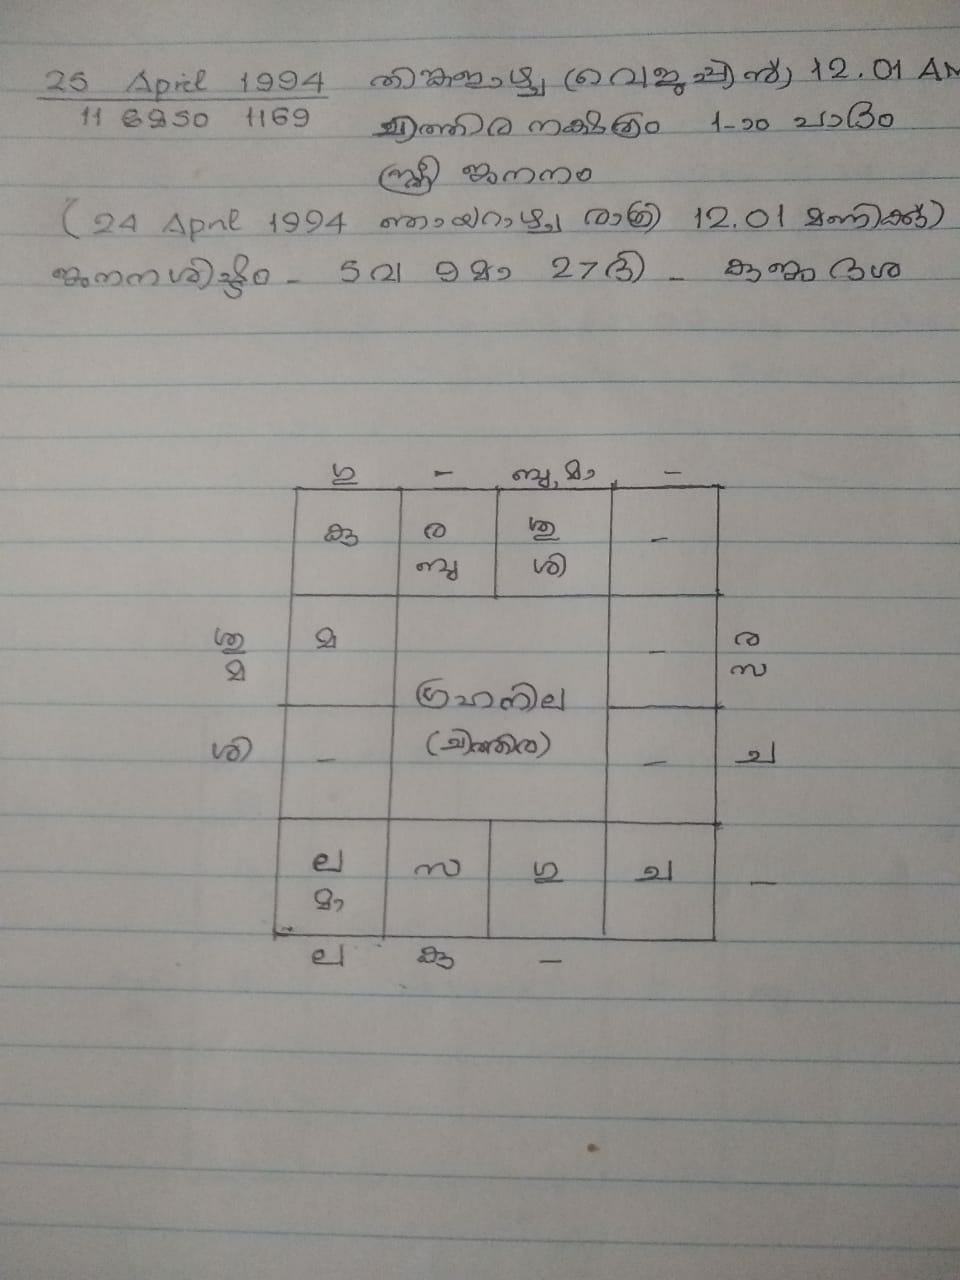 25 April 1994 തിങ്കളാഴ്ച (വെളുപ്പിന്) 12.01 AM
11 മേടം 1169 ചിത്തിര നക്ഷത്രം 1-ാo പാദം
സ്ത്രീ ജനനം
(24 April 1994 ഞായറാഴ്ച രാത്രി 12.01 മണിക്ക്)
ജനനശിഷ്ടം - 5 വ 9 മാ 27 ദി - കുജദശ
ഗു - ബു, മാ -
കു ര ശു -
ബു ശി
ശു മ - ര
മ സ
ഗ്രഹനില
ശി - (ചിത്തിര) - ച
ല സ ഗു ച -
മാ
ല കു -